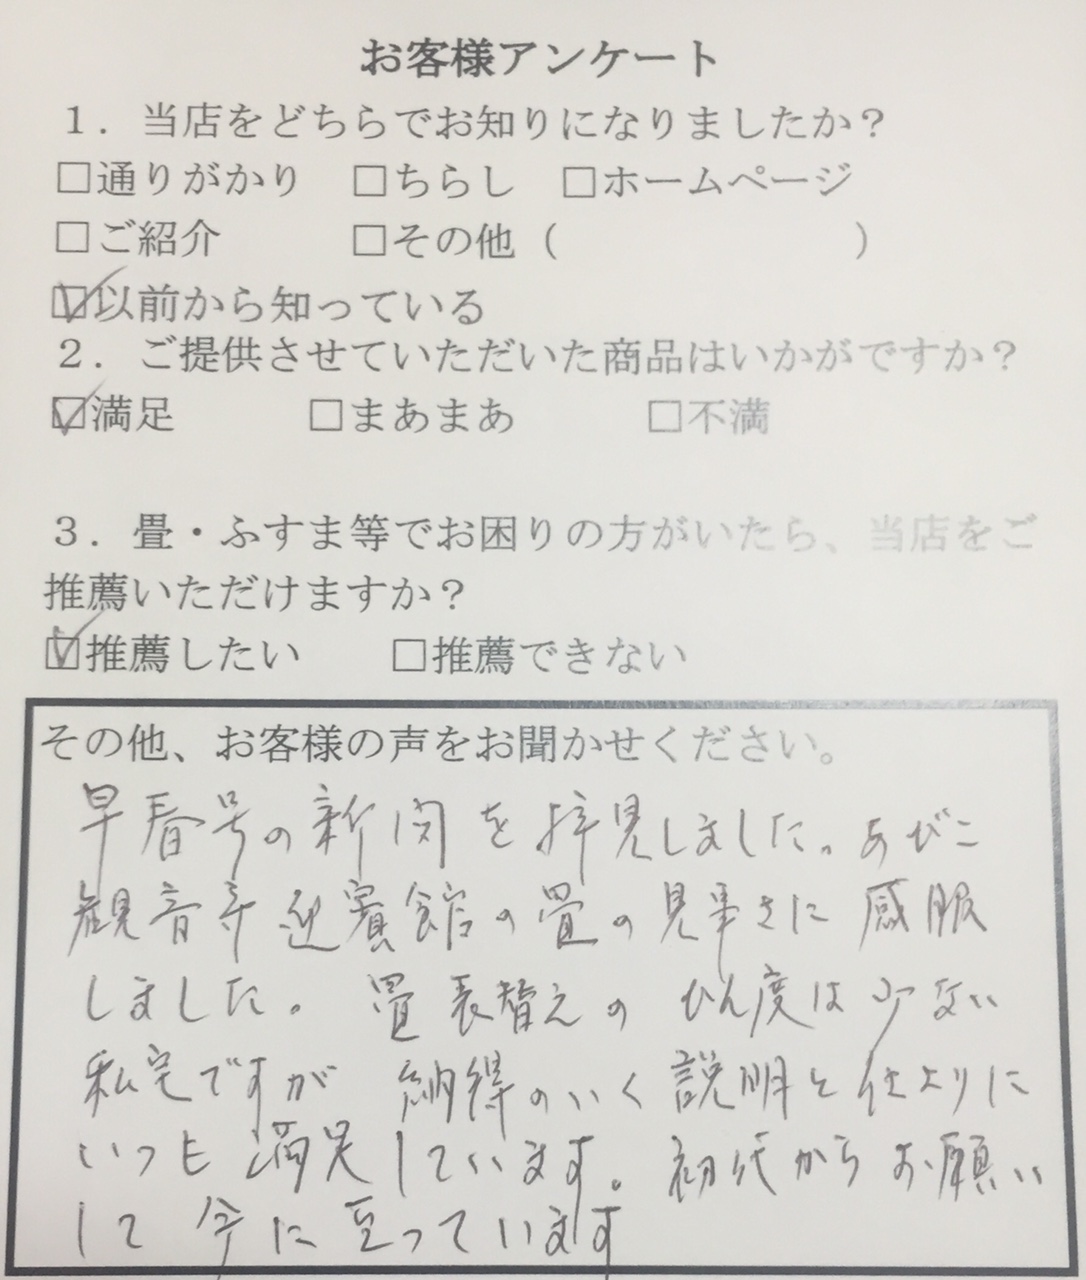 お客様アンケート
１．当店をどちらでお知りになりましたか？
□通りがかり　□ちらし　□ホームページ
□ご紹介　　　□その他（　　　　　　　）
☑以前から知っている
２．ご提供させていただいた商品はいかがですか？
☑満足　　　□まあまあ　　　□不満
３．畳・ふすま等でお困りの方がいたら、当店をご
推薦いただけますか？
☑推薦したい　　□推薦できない
その他、お客様の声をお聞かせください。
早春号の新聞を拝見しました。あびこ
観音寺迎賓館の畳の見事さに感服
しました。畳表替えのひん度は少ない
私宅ですが納得のいく説明と仕上りに
いつも満足しています。初代からお願い
して今に至っています